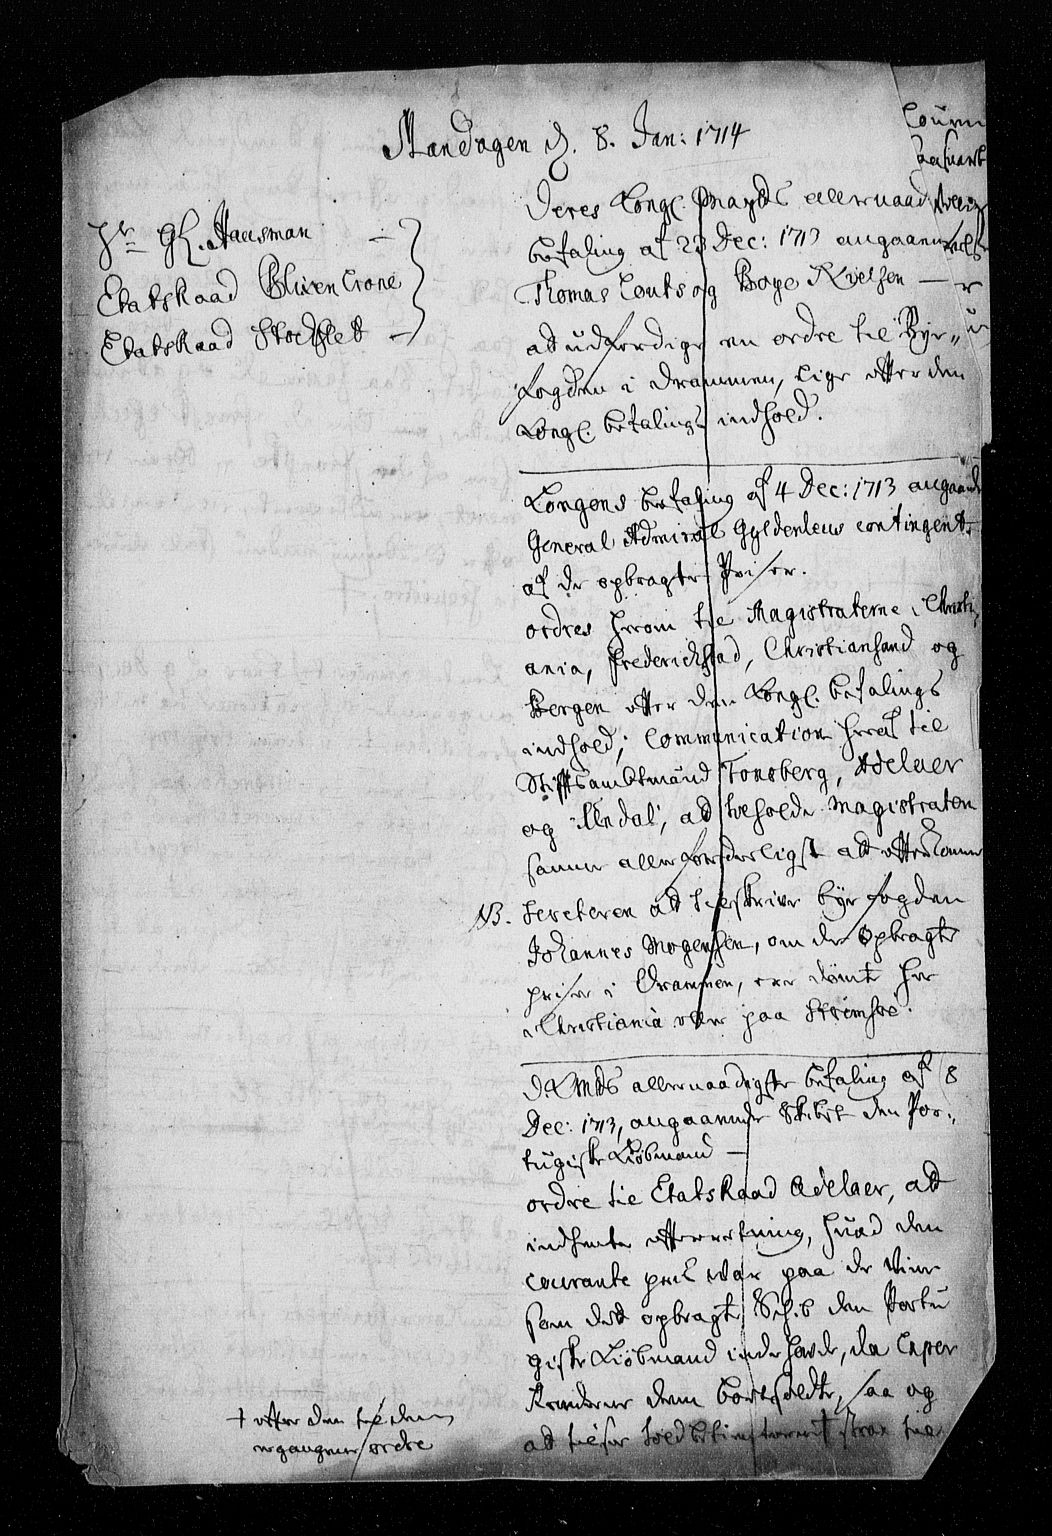 Mandagen d. 8. Jan: 1714
Hr Gl. Hausman
Etatskaad Blixencrone
Etatskaad Stockflet
Deres Kongl. Mayts allernaad
befaling af 23 Dec: 1713 angaaende
Thomas Couts og Boye Rietzen
at udferdige en ordre til Bÿe„
fogden i Drammen, lige effter den
Kongl. befalings indhold.
Kongens befaling af 4 Dec: 1713 angaaende
General Admiral Gyldenleus contingent
af de opbragte Priser.
ordres herom til Magistraterne i Christi
ania, Frederichstad, Christiansand og
Bergen effter den Kongl. befalings
indhold; communication heraf til
Stifftsambtmand Tonsberg, Adelaer
og Undal, at tilholde Magistraten
samme allerforderligst at effterkomme
NB. Secreteren at tilskrive bÿefogden
Johannes Mogensen, om de opbragte
priser i Drammen, ere dömt her
i Christiania eller paa Strömsöe.
D. K. Mts allernaadigste befaling af 8
Dec: 1713, angaaende Skibet den Por„
tugiske Kiöbmand
ordre til Etatskaad Adelaer, at
indhente effterretning, huad den
courante priis war paa de Viine
som det opbragte Schib den Portu
giske Kiöbmand inde havde, da Caper
Reederne dem bortsolte, saa og
at
strax til
+ effter den til dem
ergangene ordre